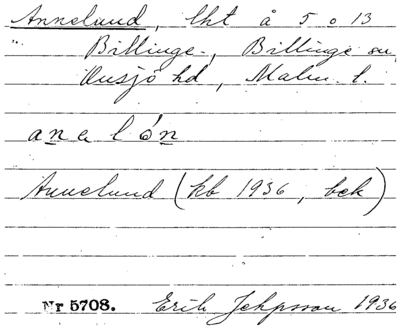 Annelund, lht å 5 o 13
" Billinge-, Billinge sn,
Onsjö hd, Malm. l.
anelón
Annelund (kb 1936, bek)
Nr 5708. Erik Jeppsson 1936